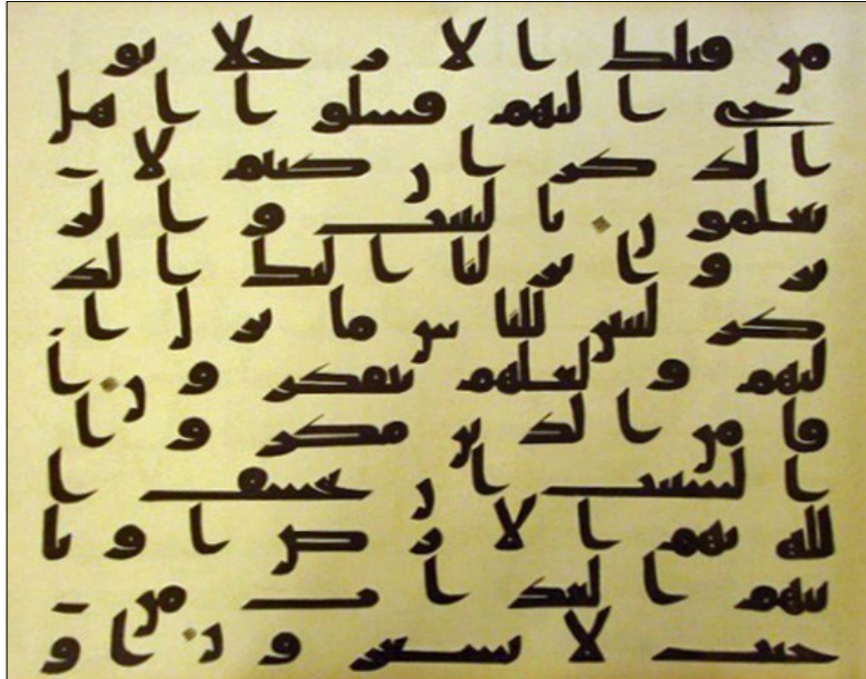 من قبلك الا رجلا نو
حى اليهم فسلوا اهل
الذكر ان كنتم لا ت
علمون بالبينت والز
بر وانزلنا اليك الذ
كر لتبين للناس ما نزل ا
ليهم ولعلهم يتفكرون ا
فامن الذين مكروا
السيت ان يخسف ا
لله بهم الارض او يا
تيهم العذاب من
حيث لا يشعرون او